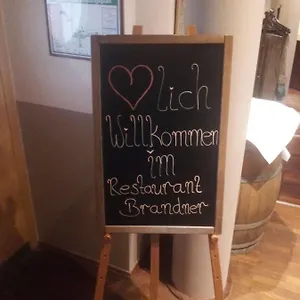 ♥lich
Willkommen
im
Restaurant
Brandner